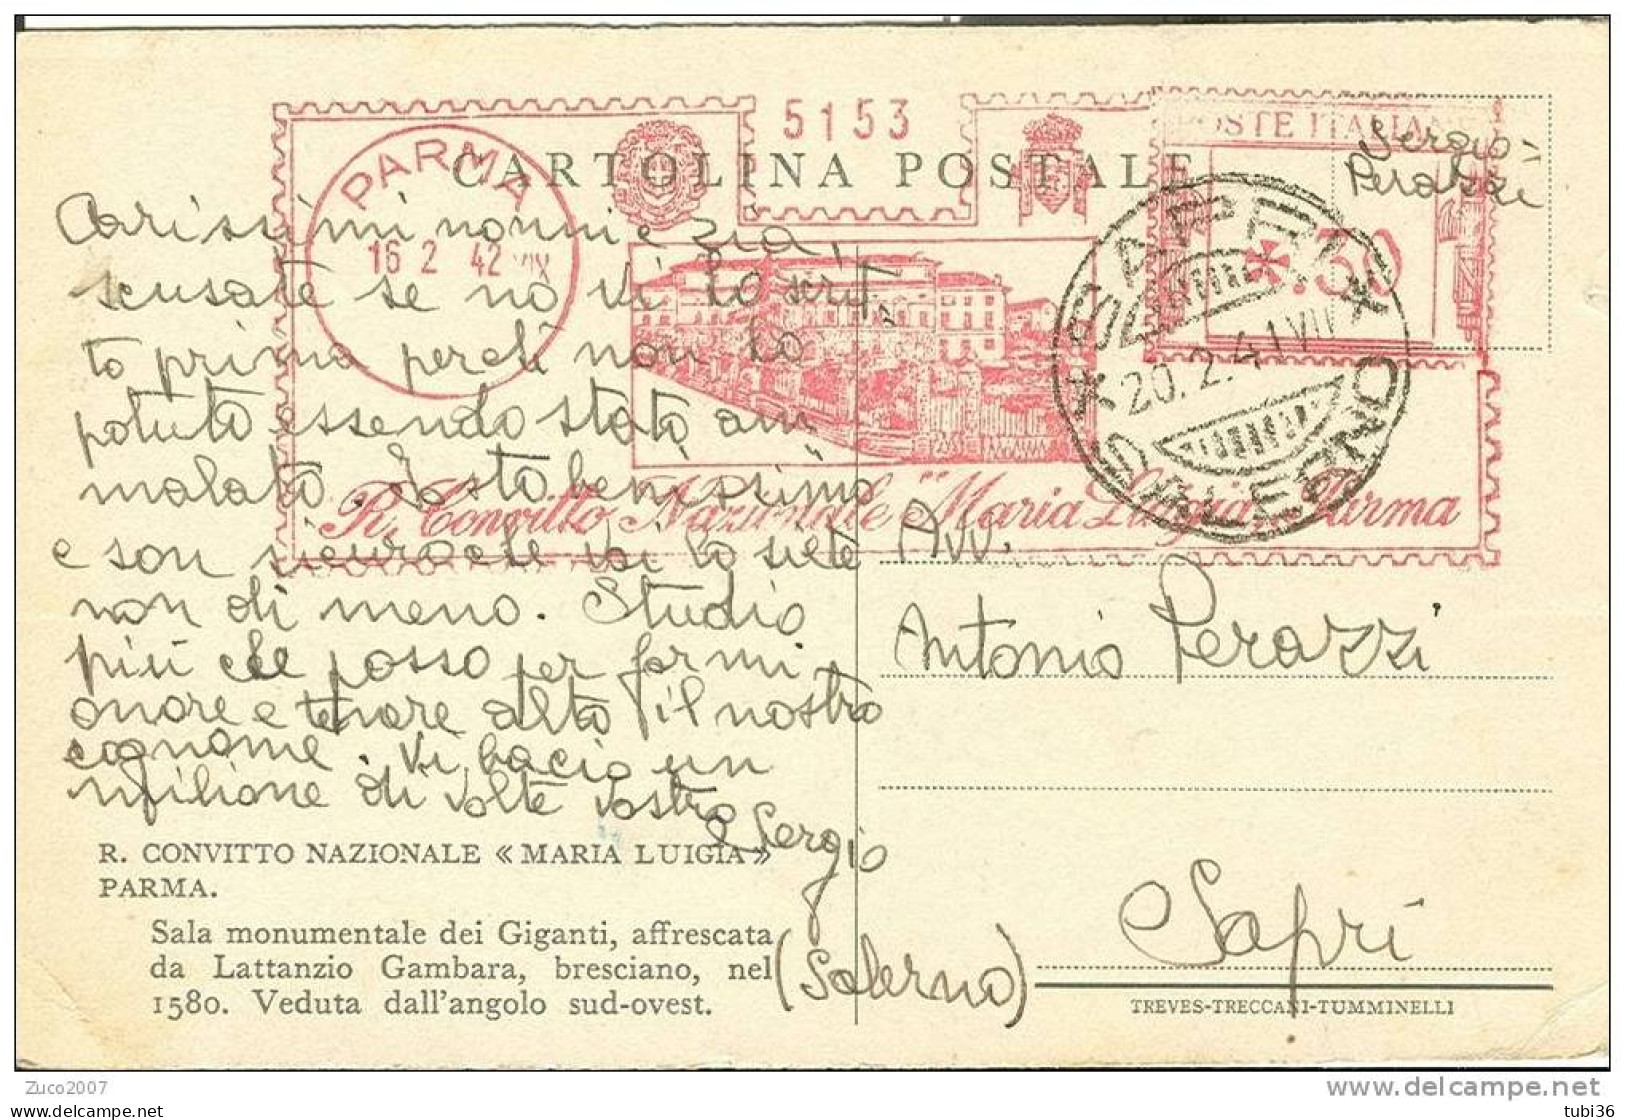 5153
CARTOLINA POSTALE
POSTE ITALIANE
PARMA
16 2 42 XX
Sergio
Perazzi
Carissimi nonni e zia,
scusate se no vi ho scrit
to prima perchè non ho
potuto essendo stato am
malato. Io sto benissimo
e son sicuro che voi lo siete
non di meno. Studio
più che posso per farmi
onore e tenere alto il nostro
cognome. Vi bacio un
milione di volte vostro
Sergio
.30
SAPRI
20.2.41 VII
SALERNO
R. Convitto Nazionale "Maria Luigia" Parma
Avv.
Antonio Perazzi
Sapri
(Salerno)
R. CONVITTO NAZIONALE «MARIA LUIGIA»
PARMA.
Sala monumentale dei Giganti, affrescata
da Lattanzio Gambara, bresciano, nel
1580. Veduta dall'angolo sud-ovest.
TREVES-TRECCANI-TUMMINELLI
Zuco2007
delcampe.net
tubi36